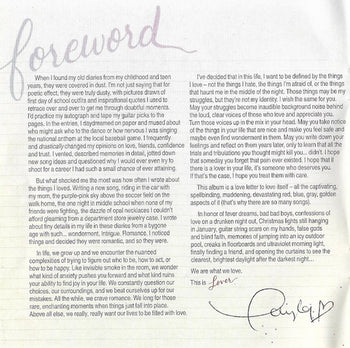 foreword
When I found my old diaries from my childhood and teen
years, they were covered in dust. I'm not just saying that for
poetic effect, they were truly dusty, with pictures drawn of
first day of school outfits and inspirational quotes I used to
retrace over and over to get me through doubtful moments.
I'd practice my autograph and tape my guitar picks to the
pages. In the entries, I daydreamed on paper and mused about
who might ask who to the dance or how nervous I was singing
the national anthem at the local baseball game. I frequently
and drastically changed my opinions on love, friends, confidence
and trust. I vented, described memories in detail, jotted down
new song ideas and questioned why I would ever even try to
shoot for a career I had such a small chance of ever attaining.
But what shocked me the most was how often I wrote about
the things I loved. Writing a new song, riding in the car with
my mom, the purple-pink sky above the soccer field on the
walk home, the one night in middle school when none of my
friends were fighting, the dazzle of opal necklaces I couldn't
afford gleaming from a department store jewelry case. I wrote
about tiny details in my life in these diaries from a bygone
age with such... wonderment, intrigue. Romance. I noticed
things and decided they were romantic, and so they were.
In life, we grow up and we encounter the nuanced
complexities of trying to figure out who to be, how to act, or
how to be happy. Like invisible smoke in the room, we wonder
what kind of anxiety pushes you forward and what kind ruins
your ability to find joy in your life. We constantly question our
choices, our surroundings, and we beat ourselves up for our
mistakes. All the while, we crave romance. We long for those
rare, enchanting moments when things just fall into place.
Above all else, we really, really want our lives to be filled with love.
I've decided that in this life, I want to be defined by the things
I love – not the things I hate, the things I'm afraid of, or the things
that haunt me in the middle of the night. Those things may be my
struggles, but they're not my identity. I wish the same for you.
May your struggles become inaudible background noise behind
the loud, clear voices of those who love and appreciate you.
Turn those voices up in the mix in your head. May you take notice
of the things in your life that are nice and make you feel safe and
maybe even find wonderment in them. May you write down your
feelings and reflect on them years later, only to learn that all the
trials and tribulations you thought might kill you... didn't. I hope
that someday you forget that pain ever existed. I hope that if
there is a lover in your life, it's someone who deserves you.
If that's the case, I hope you treat them with care.
This album is a love letter to love itself – all the captivating,
spellbinding, maddening, devastating, red, blue, gray, golden
aspects of it (that's why there are so many songs).
In honor of fever dreams, bad bad boys, confessions of
love on a drunken night out, Christmas lights still hanging
in January, guitar string scars on my hands, false gods
and blind faith, memories of jumping into an icy outdoor
pool, creaks in floorboards and ultraviolet morning light,
finally finding a friend, and opening the curtains to see the
clearest, brightest daylight after the darkest night...
We are what we love.
This is Lover